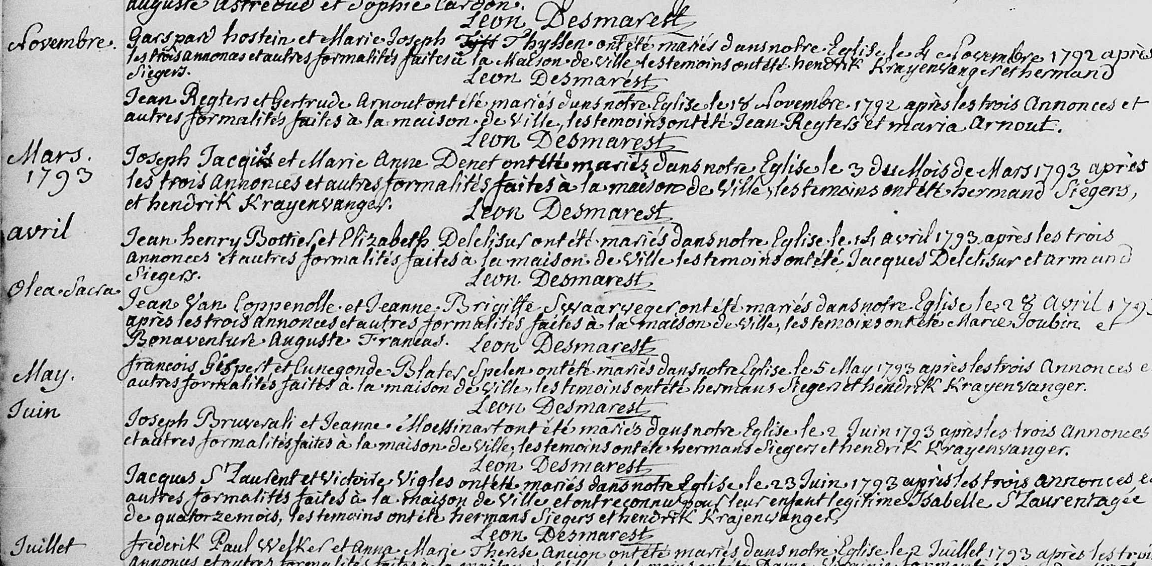 auguste Astreoud et Sophie Cardon.
Leon Desmarest
Novembre. Gaspard hostein et Marie Joseph Thyssen ont été mariés dans notre Eglise le 4 Novembre 1792 après
les trois annonces et autres formalités faites à la Maison de Ville, les temoins ont été hendrik Krayenvanger et hermand
Siegers.
Leon Desmarest
Jean Regters et Gertrude Arnout ont été mariés dans notre Eglise le 18 Novembre 1792 après les trois Annonces et
autres formalités faites à la maison de Ville, les temoins ont été Jean Regters et maria Arnout.
Leon Desmarest
Mars. Joseph Jacquis et Marie Anne Denet ont été mariés dans notre Eglise le 3 du Mois de Mars 1793 après
1793 les trois annonces et autres formalités faites à la maison de Ville, les temoins ont été hermand Siegers,
et hendrik Krayenvanger.
Leon Desmarest
avril Jean henry Bottier et Elizabeth Delclisur ont été mariés dans notre Eglise le 14 avril 1793 après les trois
annonces et autres formalités faites à la maison de Ville les temoins ont été, Jacques Delclisur et armand
Siegers.
Leon Desmarest
Olea Sacra Jean Van Coppenolle et Jeanne Brigitte Swaarweger ont été mariés dans notre Eglise le 28 Avril 1793
après les trois annonces et autres formalités faites à la maison de Ville, les temoins ont été Marie Joubin et
Bonaventure Auguste Francus.
Leon Desmarest
May. francois Géspert et Cunegonde Blater Spelen ont été mariés dans notre Eglise le 5 May 1793 après les trois Annonces et
autres formalités faites à la maison de Ville, les temoins ont été hermans Siegers et hendrik Krayenvanger.
Leon Desmarest
Juin Joseph Bruverali et Jeanne Moessinart ont été mariés dans notre Eglise le 2 Juin 1793 après les trois annonces
et autres formalités faites à la maison de Ville, les temoins ont été hermans Siegers et hendrik Krayenvanger.
Leon Desmarest
Jacques St Laurent et Victoire Vigles ont été mariés dans notre Eglise le 23 Juin 1793 après les trois annonces et
autres formalités faites à la maison de Ville et ont reconnu pour leur enfant légitime Isabelle St Laurent agée
de quatorze mois, les temoins ont été hermans Siegers et hendrik Krajenvanger,
Leon Desmarest
Juillet frederik Paul Welker et Anna Marie Therese Ancion ont été mariés dans notre Eglise le 2 Juillet 1793 après les trois
annonces et autres formalités faites à la maison de Ville